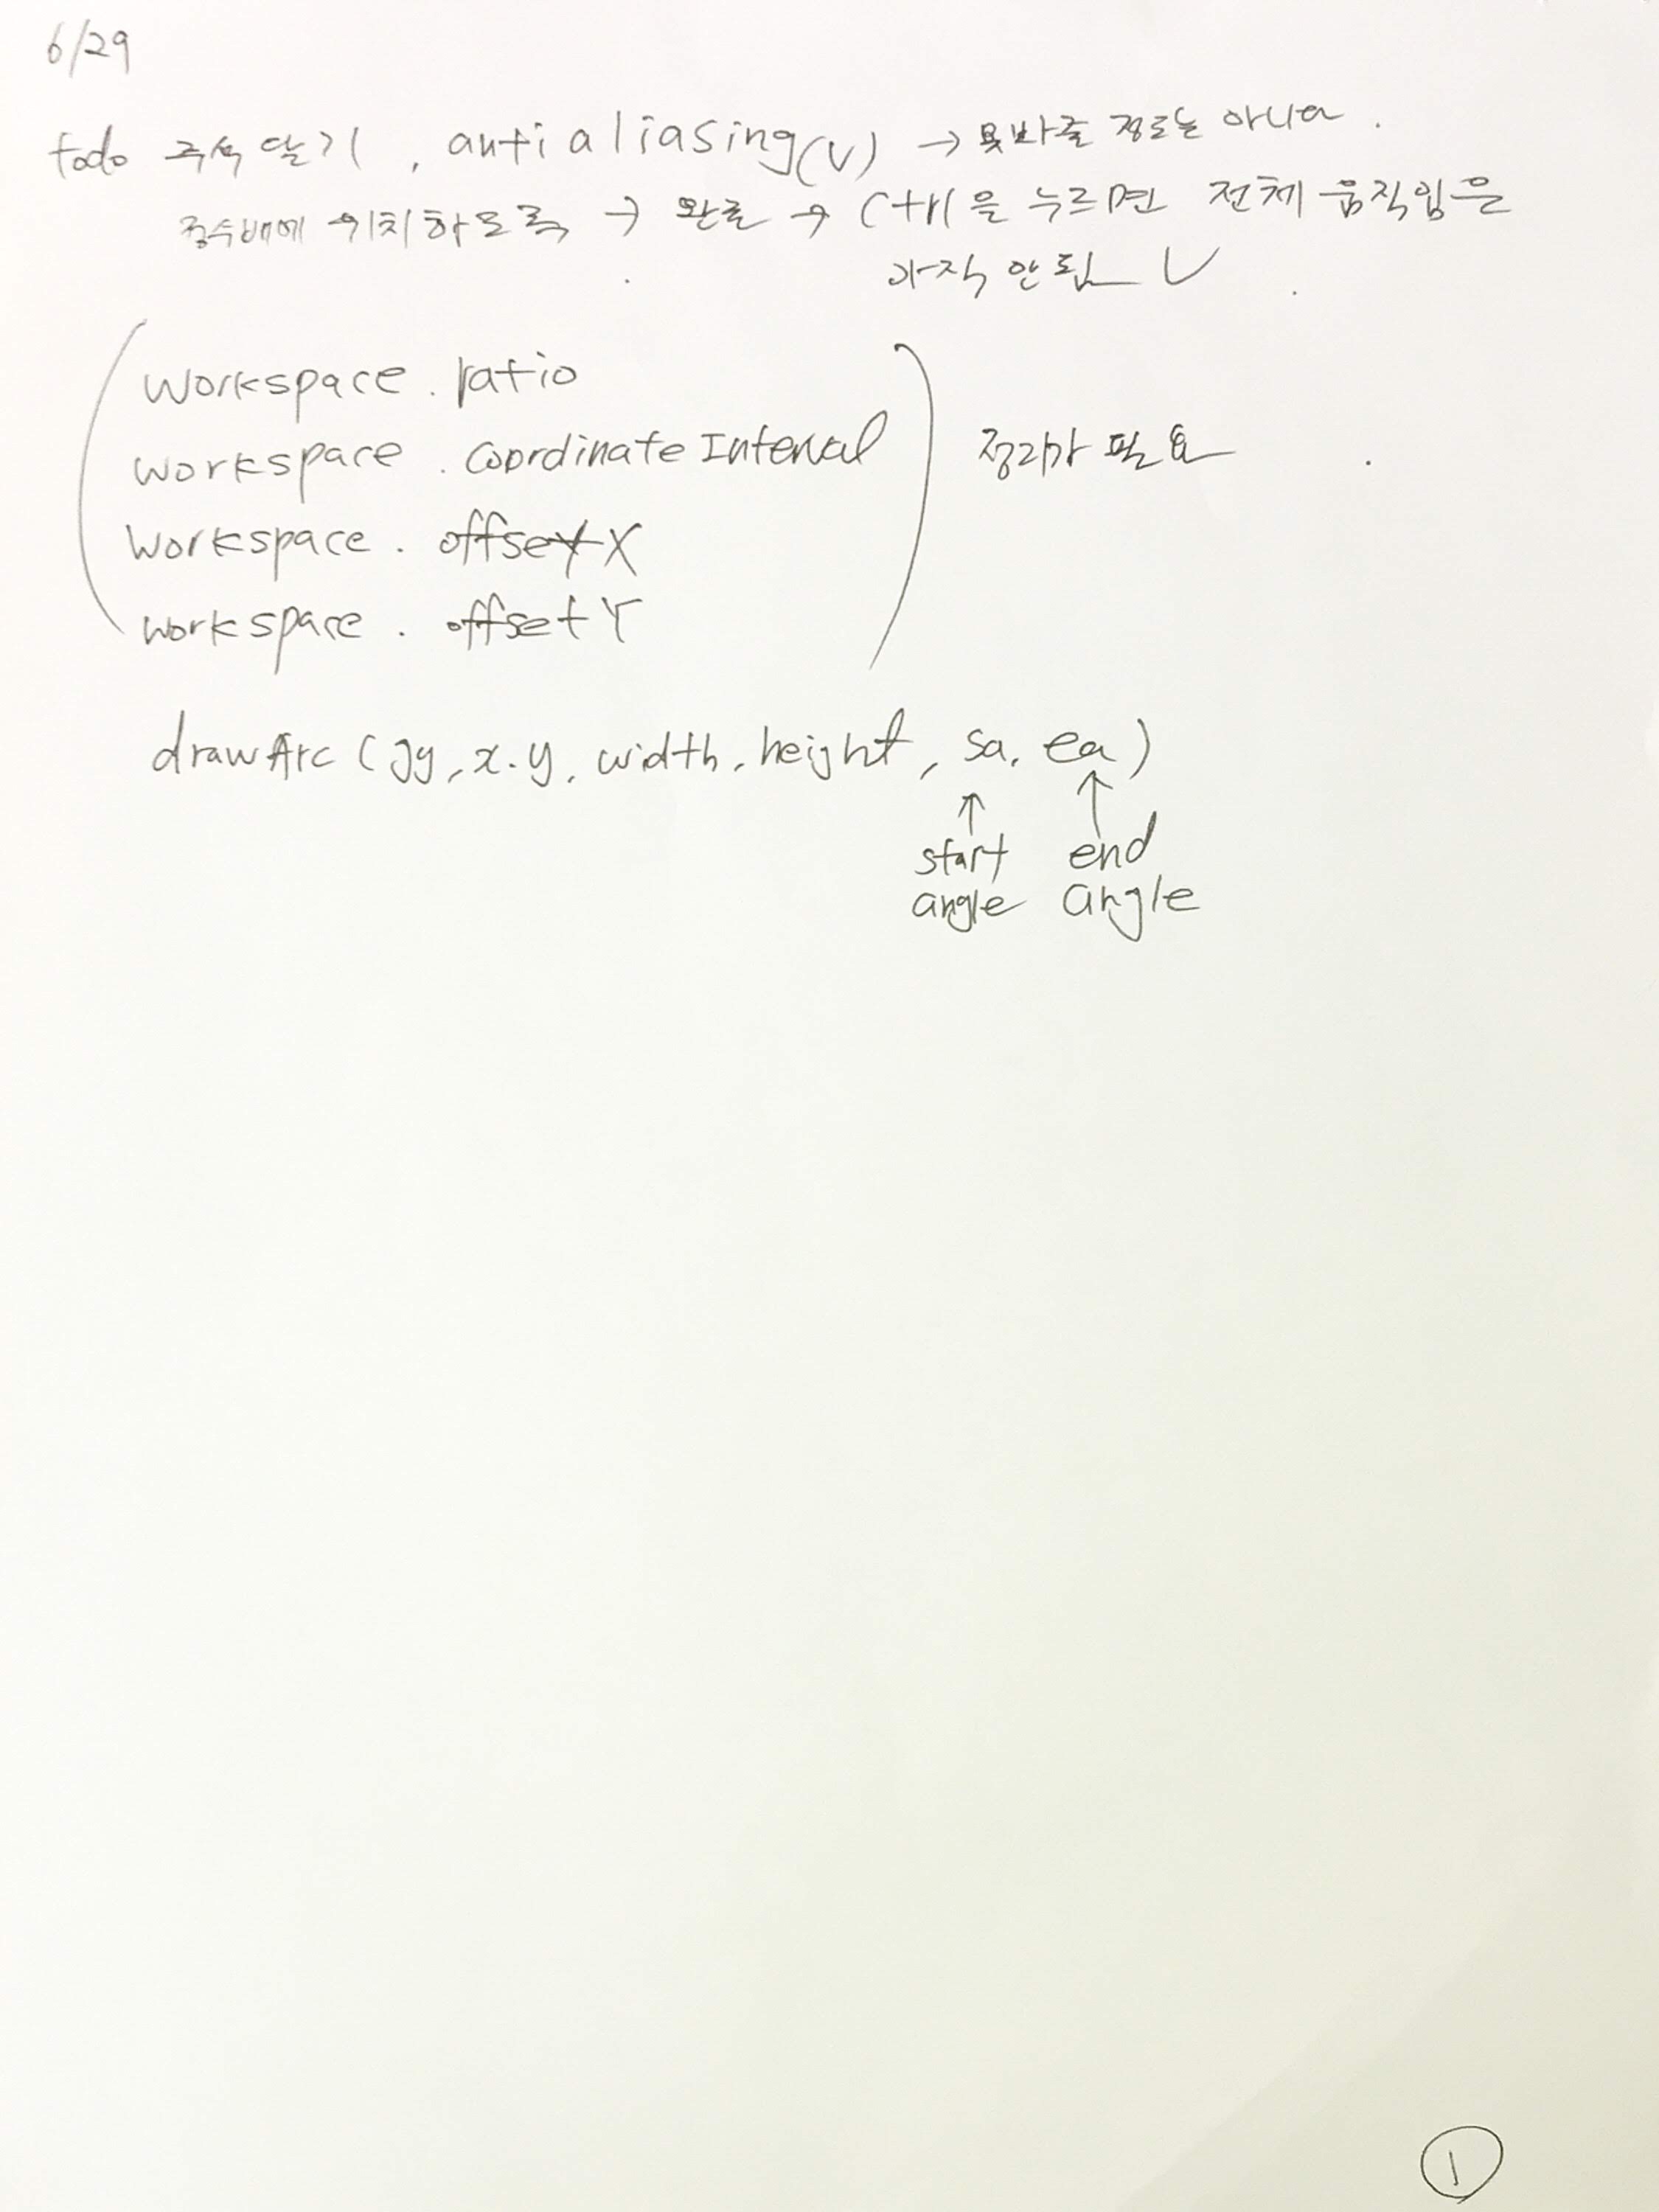 6/29
todo 주석 달기, anti aliasing(V) → 못봐줄 정도는 아니다.
정수배에 위치하도록 → 완료 → Ctrl을 누르면 전체 움직임은
아직 안됨 V
workspace.ratio
workspace.coordinateInterval 정리가 필요
workspace.offsetX
workspace.offsetY
drawArc(gy, x.y, width, height, sa, ea)
↑ ↑
start end
angle angle
1